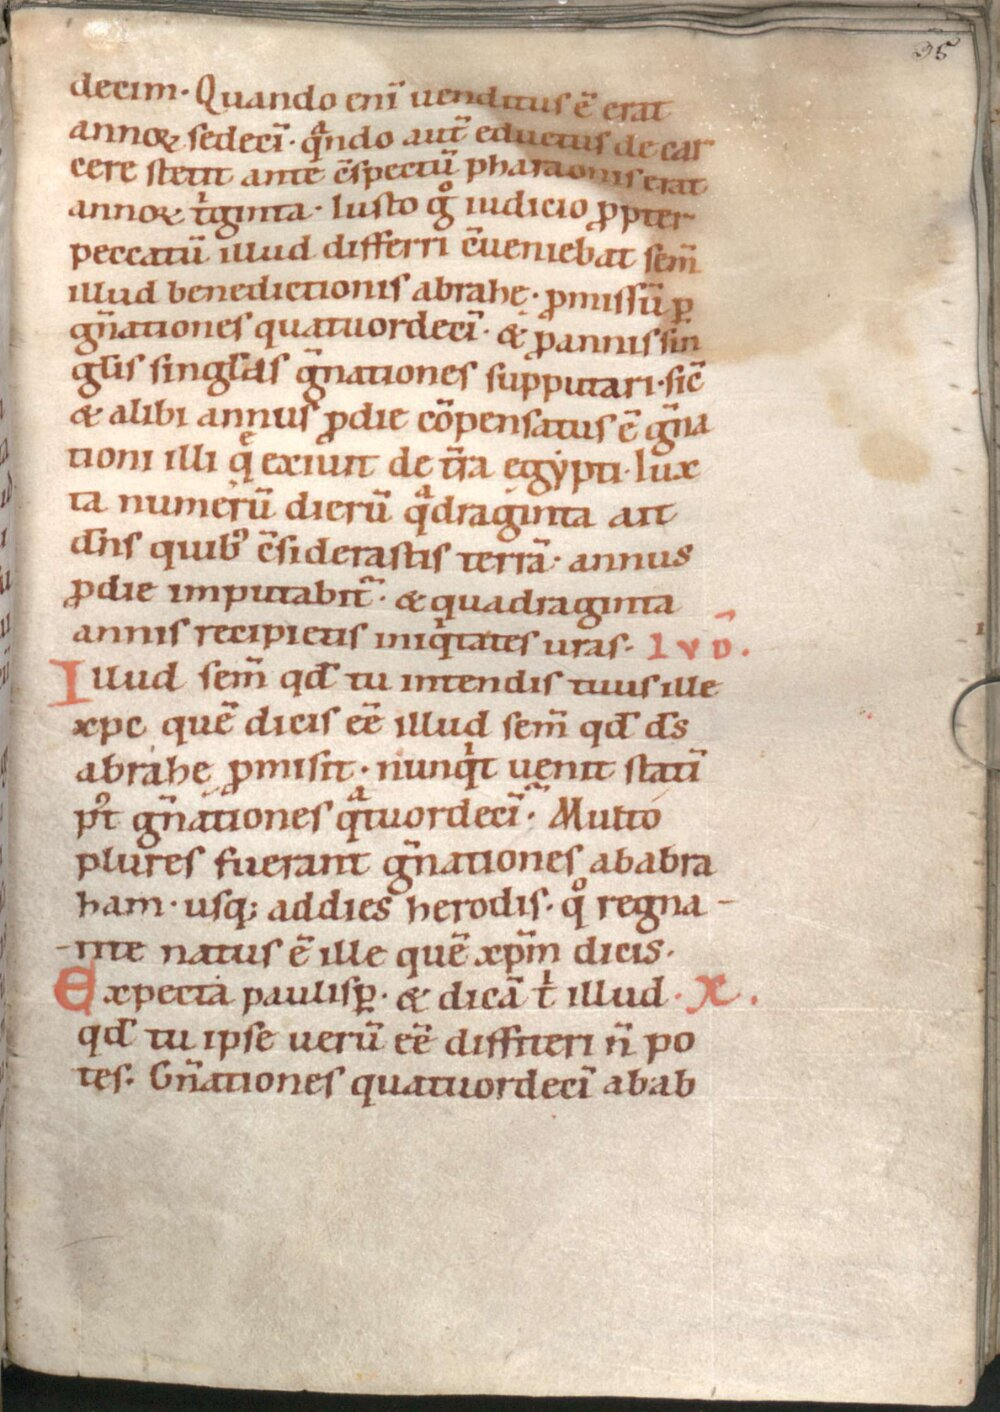 35
decim· Quando enī uenditus ē erat
annoꝝ sedecī· qͣndo aut̄ eductus de car
cere stetit ante c̄spectū pharaonis erat
annoꝝ tͥginta· Iusto gͦ iudicio ꝓpter
peccatū illud differri c̄ueniebat sem̄
illud benedictionis abrahę· ꝓmissū ꝑ
gn̄ationes quatuordecī· & ꝓ annis sin
gl̄is singl̄as gn̄ationes supputari· sic̄
& alibi annus ꝓ die cōpensatus ē gn̄a
tioni illi q̨ exiuit de tr̄a egypti· Iux
ta numerū dierū qͣdraginta ait
dn̄s quibꝰ c̄siderastis terrā· annus
ꝓ die imputabit̄· & quadraginta
annis recipietis iniqͥtates uras· IVD̄.
Illud sem̄ qd̄ tu intendis tuus ille
xpc quē dicis eē illud sem̄ qd̄ ds
abrahę ꝓmisit· nunqͥt uenit statī
pꝰt gn̄ationes qͣtuordecī· Multo
plures fuerant gn̄ationes ab abra
ham· usq; ad dies herodis· qͦ regna-
-nte natus ē ille quē xpm̄ dicis·
Expecta paulisꝑ· & dicā tͥ illud· X.
qd̄ tu ipse uerū eē diffiteri n̄ po
tes· Gn̄ationes quatuordecī ab ab